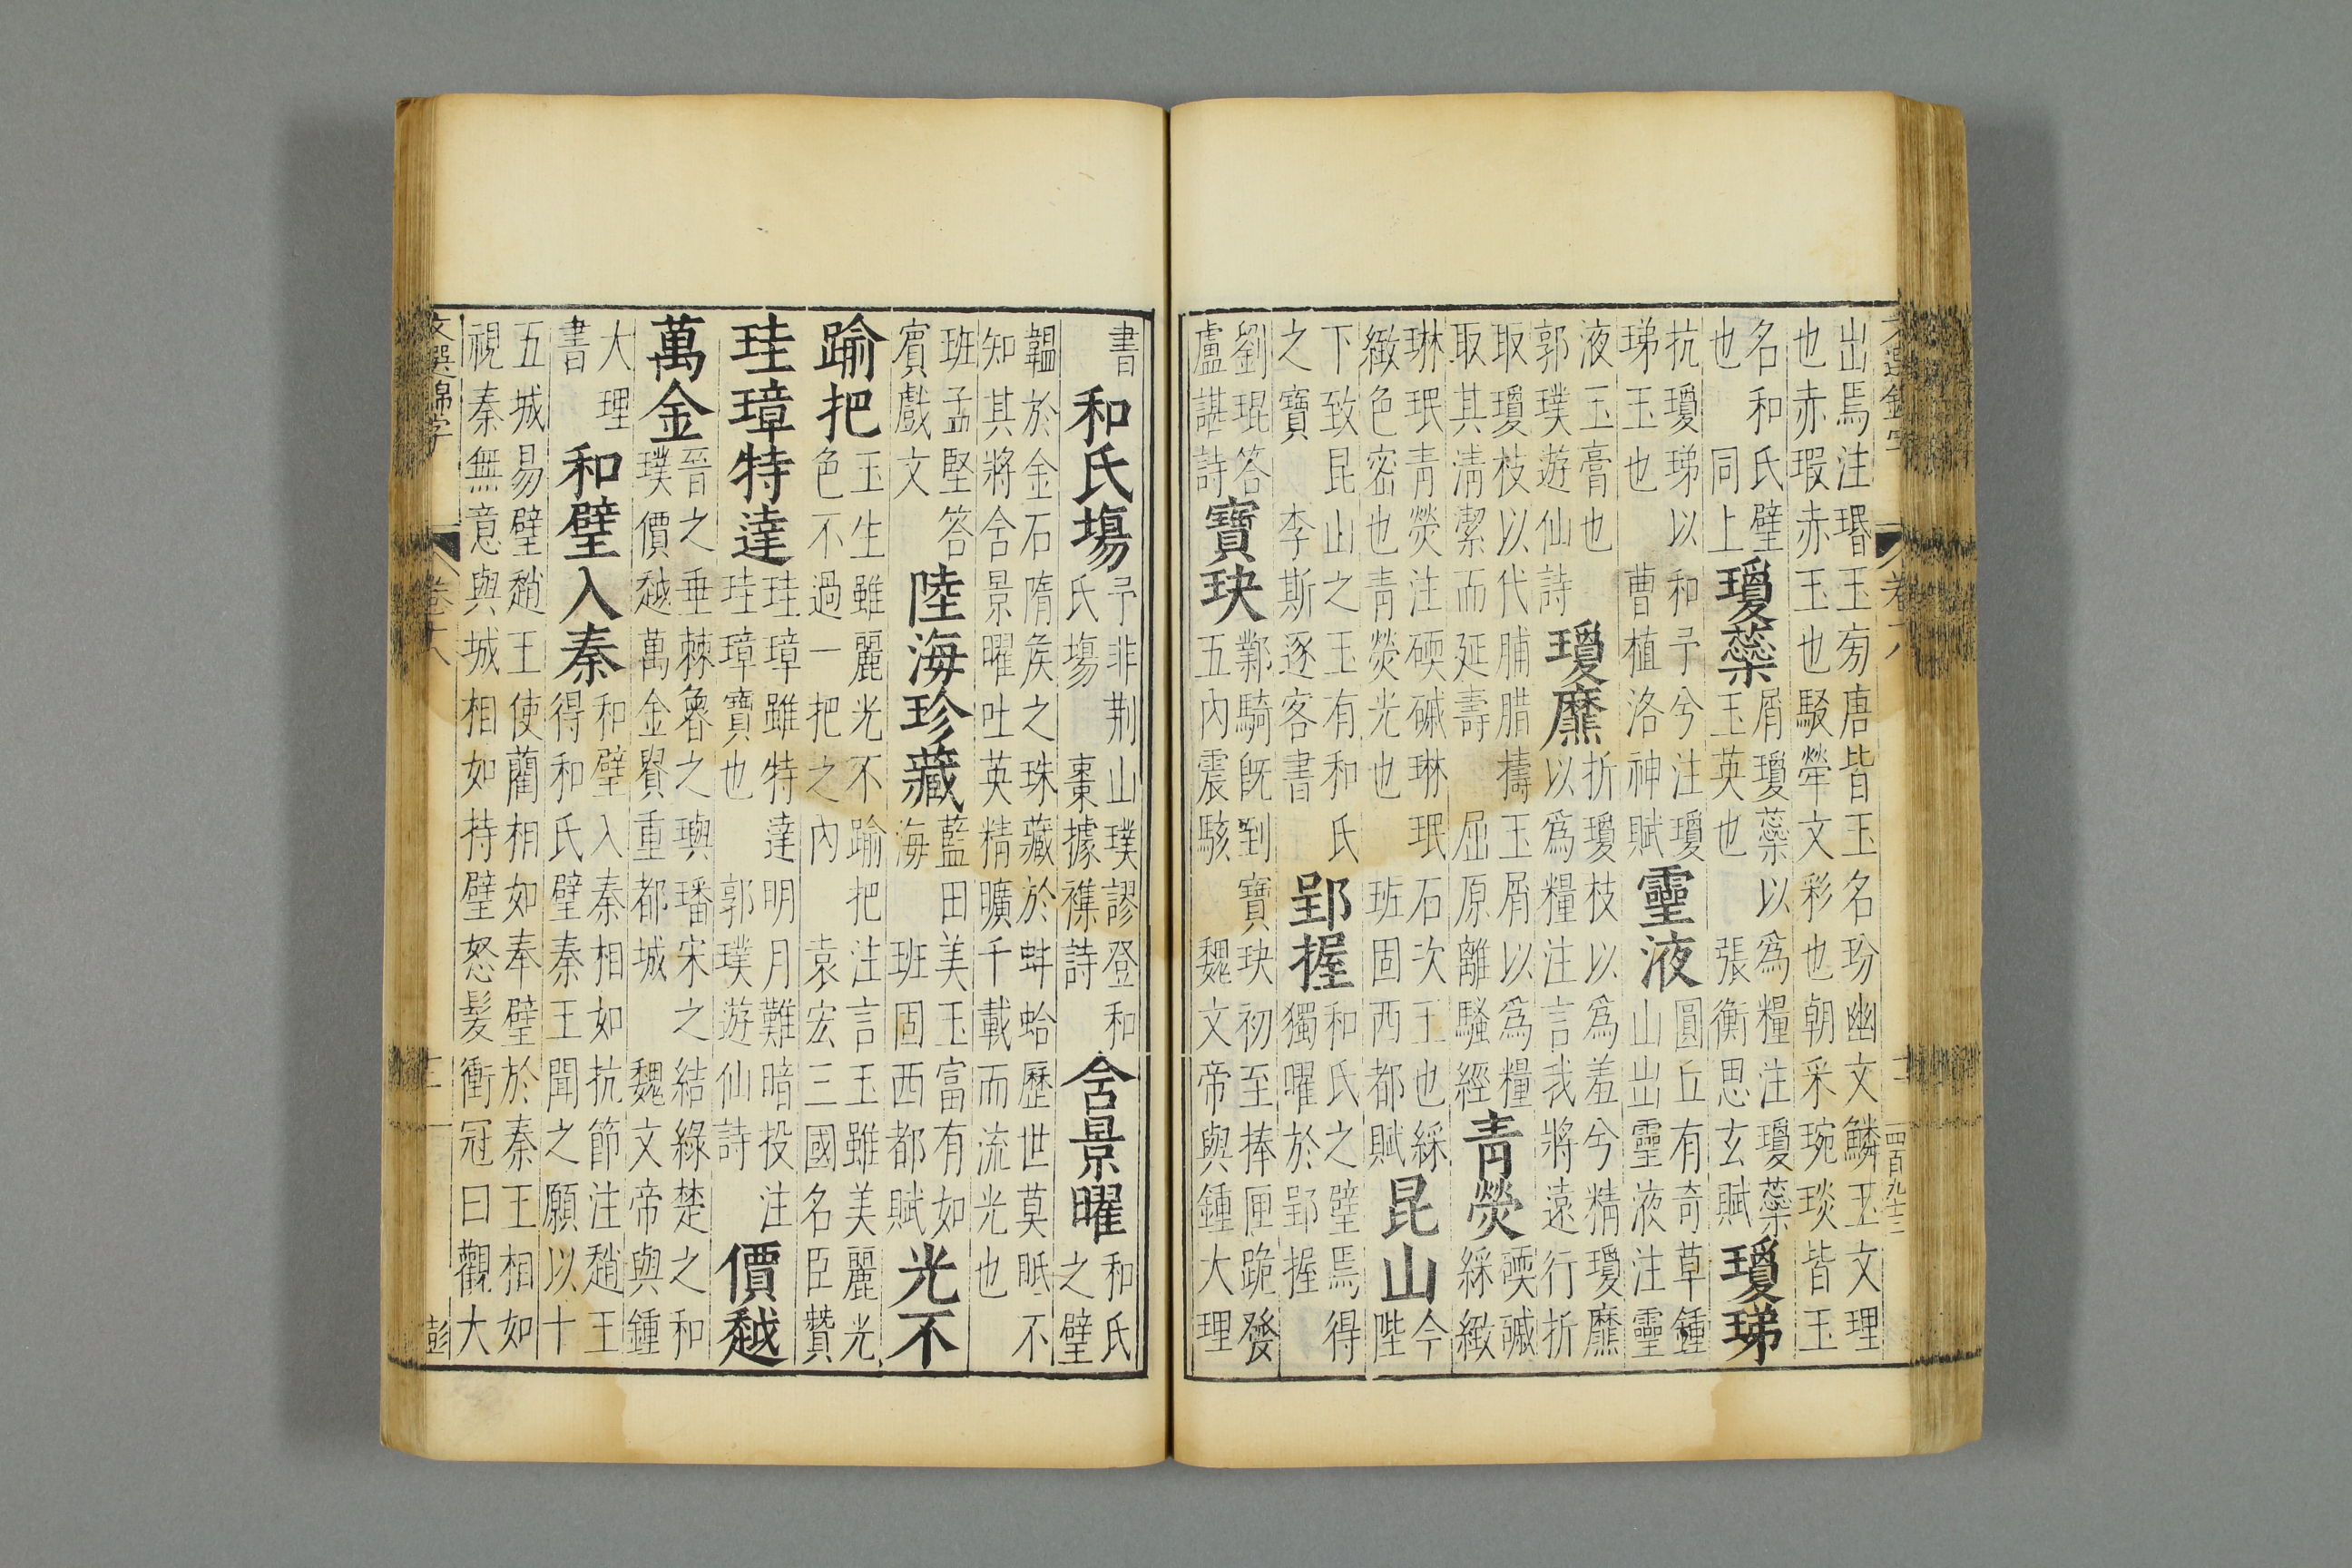 出焉注瑉玉旁唐皆玉名玢幽文鱗玉文理
也赤瑕赤玉也駁犖文彩也朝采琬琰皆玉
名和氏璧
也 同上
瓊蘂
屑瓊蘂以為糧注瓊蘂
玉英也 張衡思玄賦
瓊珶
抗瓊珶以和予兮注瓊
珶玉也 曹植洛神賦
靈液
圓丘有奇草鍾
山出靈液注靈
液玉膏也
郭璞遊仙詩
瓊爢
折瓊枝以為羞兮精瓊爢
以為糧注言我將遠行折
取瓊枝以代脯腊擣玉屑以為糧
取其清潔而延壽 屈原離騷經
青熒
碝磩
綵緻
琳珉青熒注碝磩琳珉石次玉也綵
緻色密也青熒光也 班固西都賦
昆山
今
陛
下致昆山之玉有和氏
之寶 李斯逐客書
郢握
和氏之璧焉得
獨曜於郢握
劉琨答
盧諶詩
寶玦
鄴騎旣到寶玦初至捧匣跪發
五內震駭 魏文帝與鍾大理
書
和氏塲
予非荆山璞謬登和
氏塲 棗據襍詩
含景曜
和氏
之璧
韞於金石隋侯之珠藏於蚌蛤歷世莫眂不
知其將含景曜吐英精曠千載而流光也
班孟堅答
賓戲文
陸海珍藏
藍田美玉富有如
海 班固西都賦
光不
踰把
玉生雖麗光不踰把注言玉雖美麗光
色不過一把之內 袁宏三國名臣贊
珪璋特達
珪璋雖特達明月難暗投注
珪璋寶也 郭璞遊仙詩
價越
萬金
晉之垂棘魯之璵璠宋之結綠楚之和
璞價越萬金貴重都城 魏文帝與鍾
大理
書
和璧入秦
和璧入秦相如抗節注趙王
得和氏璧秦王聞之願以十
五城易璧趙王使藺相如奉璧於秦王相如
視秦無意與城相如持璧怒髮衝冠曰觀大
文選錦字
彭